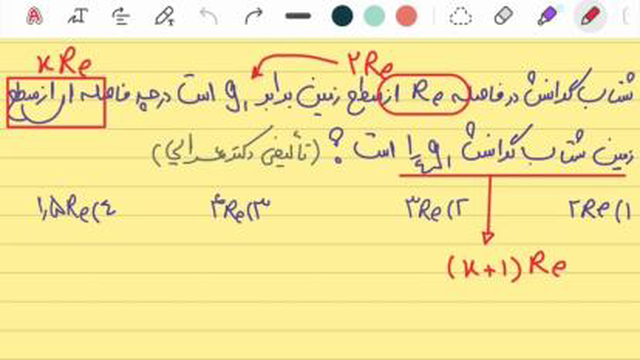 xRe ۲Re
شتاب گرانش در فاصله Re از سطح زمین برابر g₁ است در چه فاصله ای از سطح
زمین شتاب گرانش ¼g₁ است ؟ (تألیفی دکتر عزالی)
۱) ۲Re ۲) ۳Re ۳) ۴Re ۴) ۱,۵Re
(x+1)Re